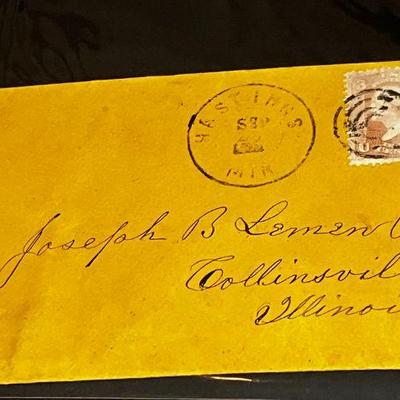 HASTINGS
SEP
MIN
Joseph B Lemen
Collinsvil
Illinoi